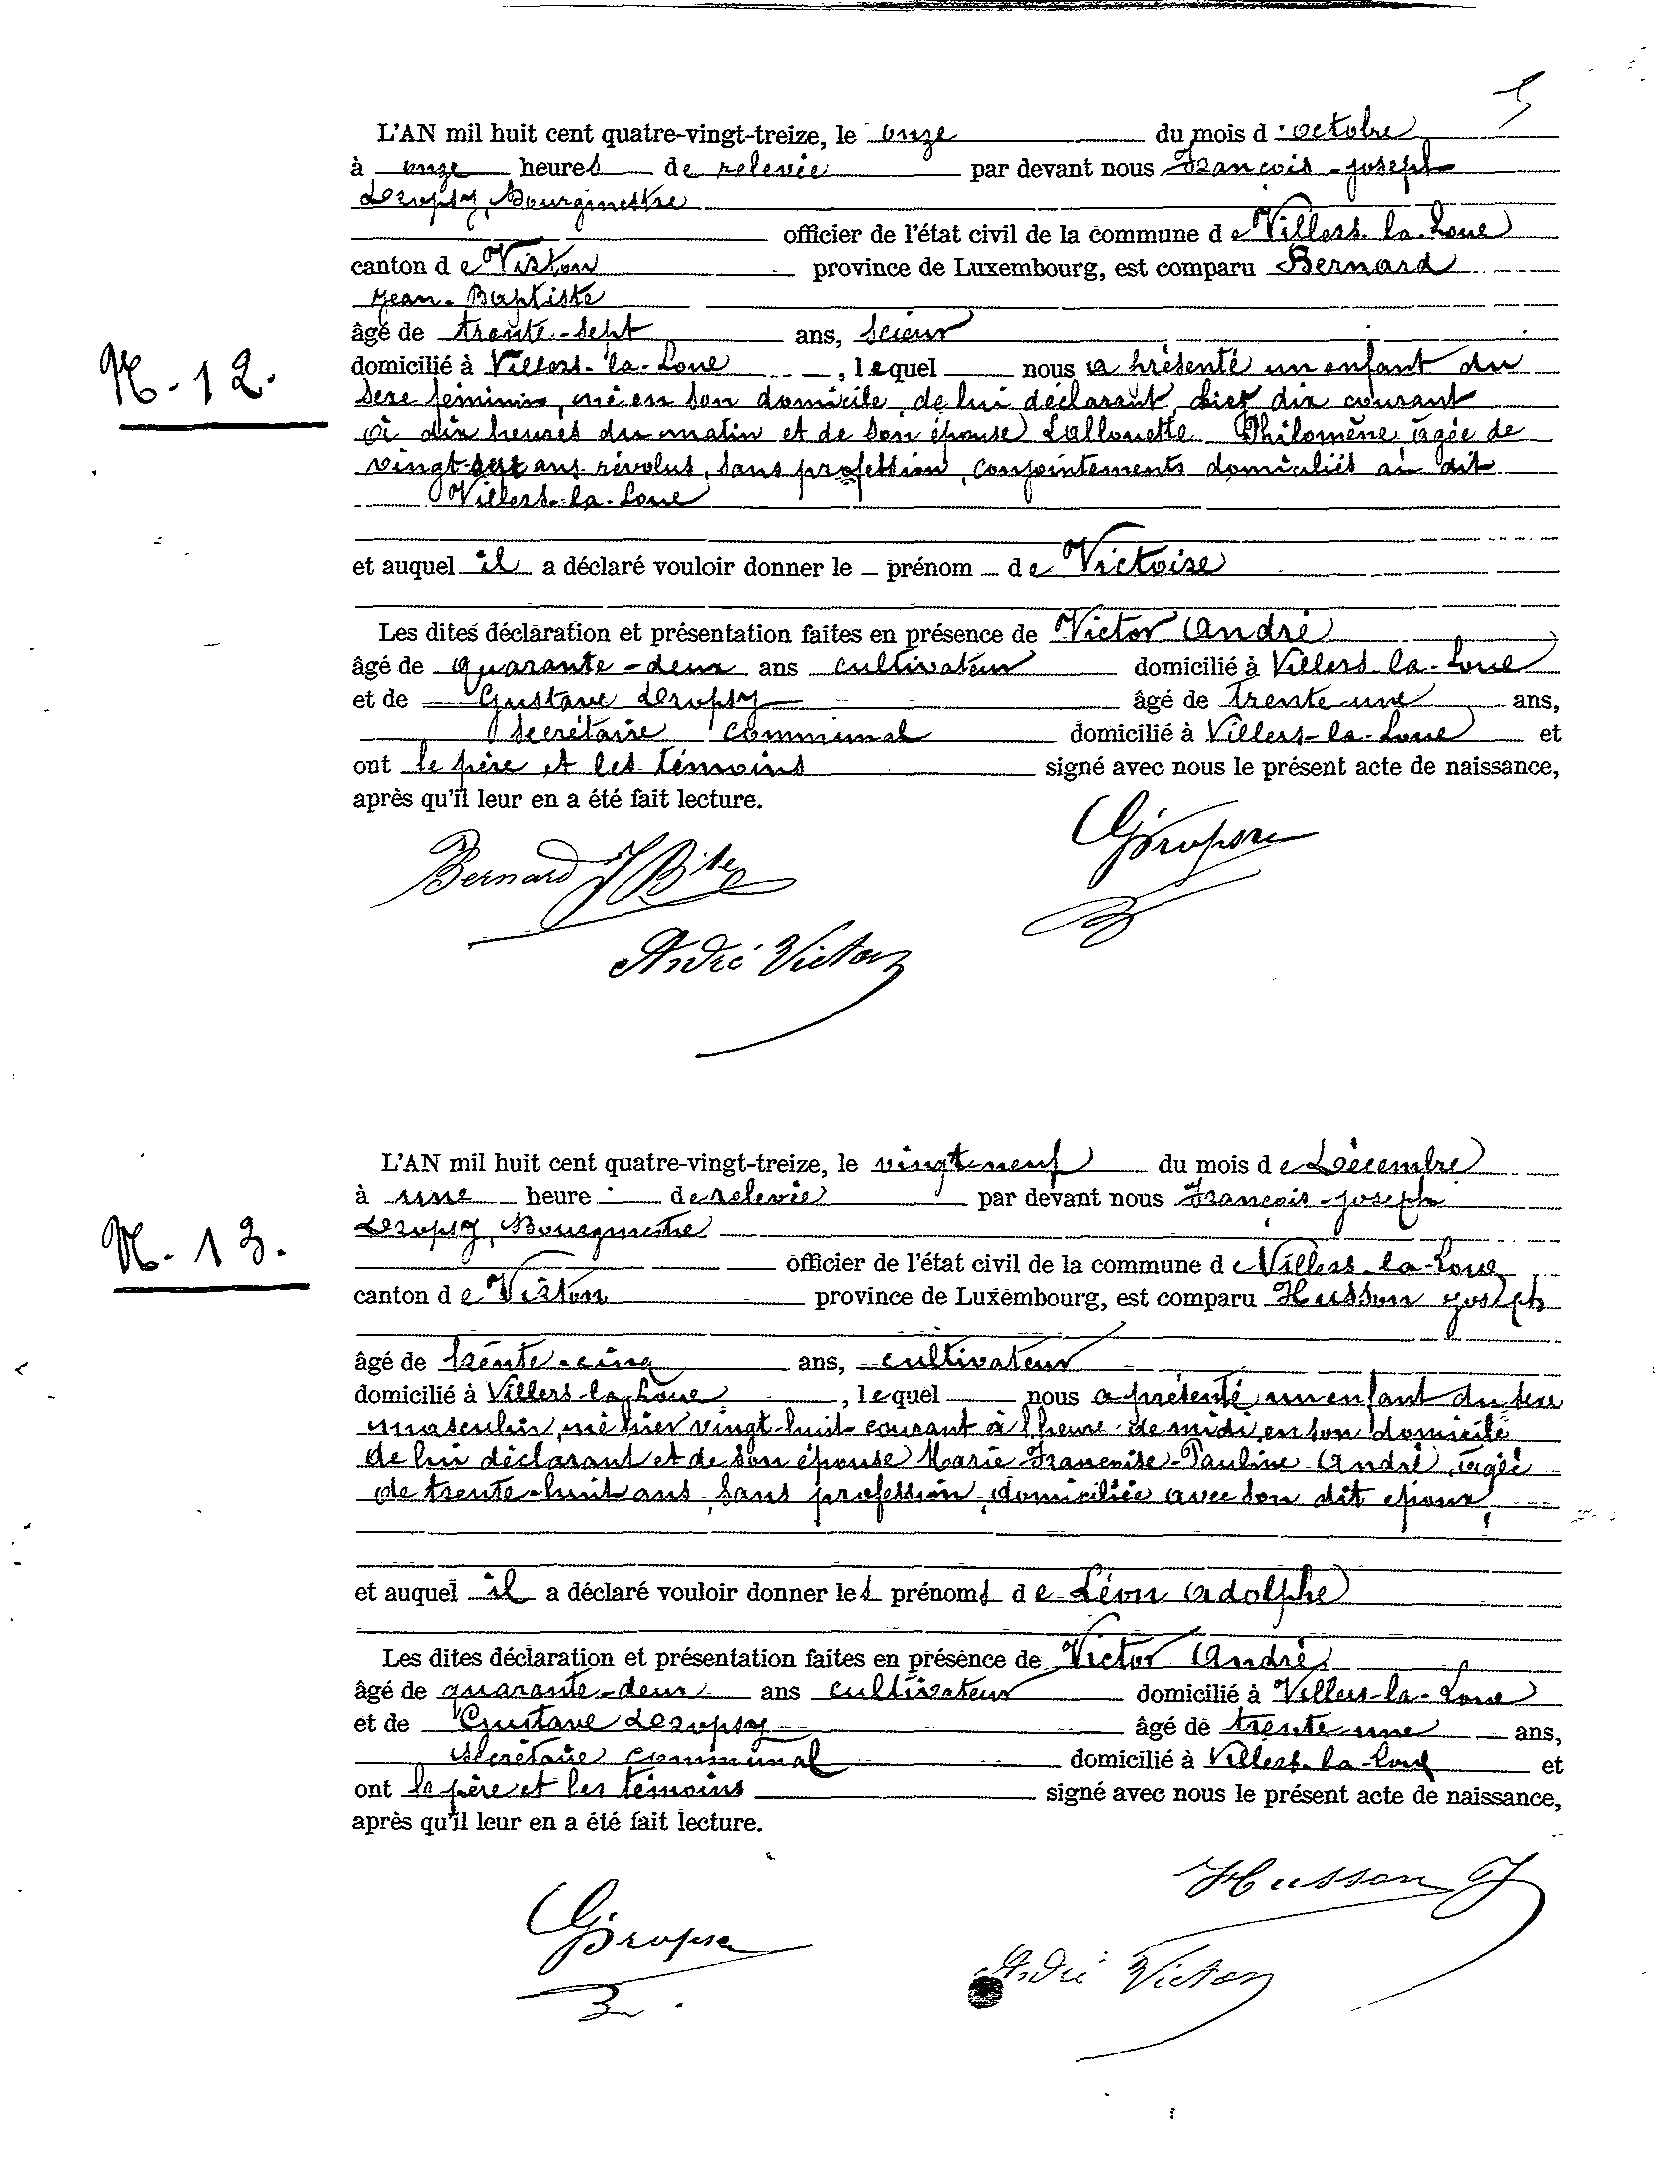 5
L'AN mil huit cent quatre-vingt-treize, le onze du mois d'octobre
à onze heures de relevée par devant nous François-Joseph
Deropsy, Bourgmestre
officier de l'état civil de la commune de Villers-la-Loue
canton de Virton province de Luxembourg, est comparu Bernard
Jean-Baptiste
âgé de trente-sept ans, scieur
N. 12.
domicilié à Villers-la-Loue, lequel nous a présenté un enfant du
sexe féminin, né en son domicile, de lui déclarant, hier dix courant
à dix heures du matin et de son épouse Lallouette Philomène, âgée de
vingt-sept ans révolus, sans profession, conjointements domiciliés au dit
Villers-la-Loue
et auquel il a déclaré vouloir donner le prénom de Victoire
Les dites déclaration et présentation faites en présence de Victor André
âgé de quarante-deux ans cultivateur domicilié à Villers-la-Loue
et de Gustave Deropsy âgé de trente-une ans,
secrétaire communal domicilié à Villers-la-Loue et
ont le père et les témoins signé avec nous le présent acte de naissance,
après qu'il leur en a été fait lecture.
Bernard J Bte
André Victor
L'AN mil huit cent quatre-vingt-treize, le vingt-neuf du mois de Décembre
à une heure de relevée par devant nous François-Joseph
Deropsy, Bourgmestre
N. 13.
officier de l'état civil de la commune de Villers-la-Loue
canton de Virton province de Luxembourg, est comparu Husson Joseph
âgé de trente-cinq ans, cultivateur
domicilié à Villers-la-Loue, lequel nous a présenté un enfant du sexe
masculin, né hier vingt-huit courant à l'heure de midi, en son domicile
de lui déclarant et de son épouse Marie-Françoise-Pauline André, âgée
de trente-huit ans, sans profession, domiciliée avec son dit époux,
et auquel il a déclaré vouloir donner les prénoms de Léon Adolphe
Les dites déclaration et présentation faites en présence de Victor André
âgé de quarante-deux ans cultivateur domicilié à Villers-la-Loue
et de Gustave Deropsy âgé de trente-une ans,
secrétaire communal domicilié à Villers-la-Loue et
ont le père et les témoins signé avec nous le présent acte de naissance,
après qu'il leur en a été fait lecture.
Husson J
André Victor